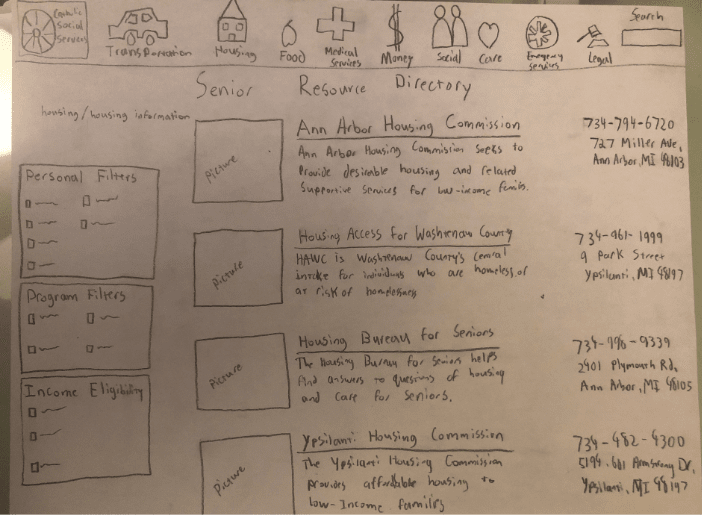 Catholic
Social
Services
Transportation
Housing
Food
Medical
Services
Money
Social
Care
Emergency
Services
Legal
Search
Senior Resource Directory
housing/housing information
Personal Filters
Program Filters
Income Eligibility
Picture
Ann Arbor Housing Commission
Ann Arbor Housing Commision seeks to
Provide desirable housing and related
Supportive Services for low-income
734-794-6720
727 Miller Ave,
Ann Arbor, MI 48103
Picture
Housing Access for Washtenaw County
HAWC is Washtenaw County's Central
intake for individuals who are homeless or
at risk of
734-961-1999
9 Park Street
Ypsilanti, MI 48197
Picture
Housing Bureau for Seniors
The Housing Bureau for Seniors helps
find answers to questions of housing
and care for seniors.
734-998-9339
2401 Plymouth Rd,
Ann Arbor, MI 48105
Picture
Ypsilanti Housing Commission
The Ypsilanti Housing Commission
provides affordable housing to
low-Income families
734-482-4300
Armstrong Dr,
Ypsilanti, MI 48197